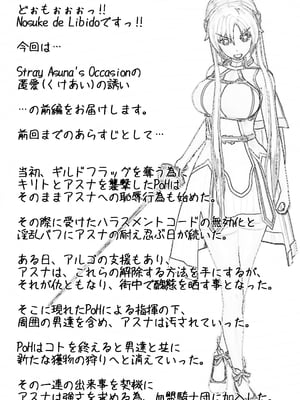 どぉもぉぉぉっ!!
Nosuke de Libidoですっ!!
今回は…
Stray Asuna's Occasionの
匱愛(くけあい)の誘い
…の前編をお届けします。
前回までのあらすじとして…
当初、ギルドフラッグを奪う為に
キリトとアスナを襲撃したPoHは
そのままアスナへの恥辱行為も始めた。
その際に受けたハラスメントコードの無効化と
淫乱バフにアスナの耐え忍ぶ日が続いた。
ある日、アルゴの支援もあり、
アスナは、これらの解除する方法を手にするが、
それが仇ともなり、街中で醜態を晒す事となった。
そこに現れたPoHによる指揮の下、
周囲の男達を含め、アスナは汚されていった。
PoHはコトを終えると男達と共に
新たな獲物の狩りへと消えていった。
その一連の出来事を契機に
アスナは強さを求める為、血盟騎士団に加入した。